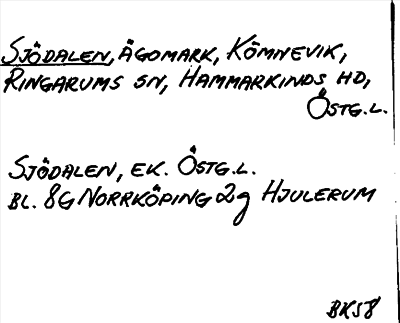 SJÖDALEN, ÄGOMARK, KÖMNEVIK,
RINGARUMS SN, HAMMARKINDS HD,
ÖSTG.L.
SJÖDALEN, EK. ÖSTG.L.
BL. 8G NORRKÖPING 2g HJULERUM
BK58